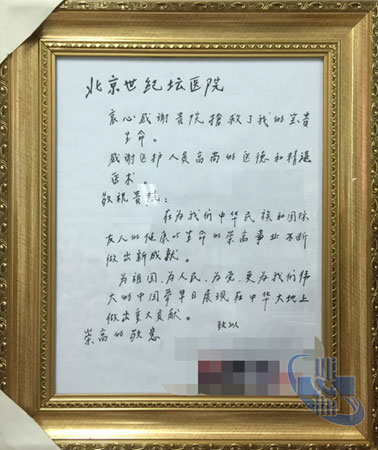 北京世纪坛医院
衷心感谢贵院搶救了我的宝贵
生命。
感谢医护人员高尚的医德和精湛
医术。
敬祝贵院：
在为我们中华民族和国际
友人的健康　生命的崇高事业不断
做出新成献。
为祖国、为人民、为党、更为我们伟
大的中国夢早日展现在中华大地上
做出重大贡献。
致以
崇高的敬意